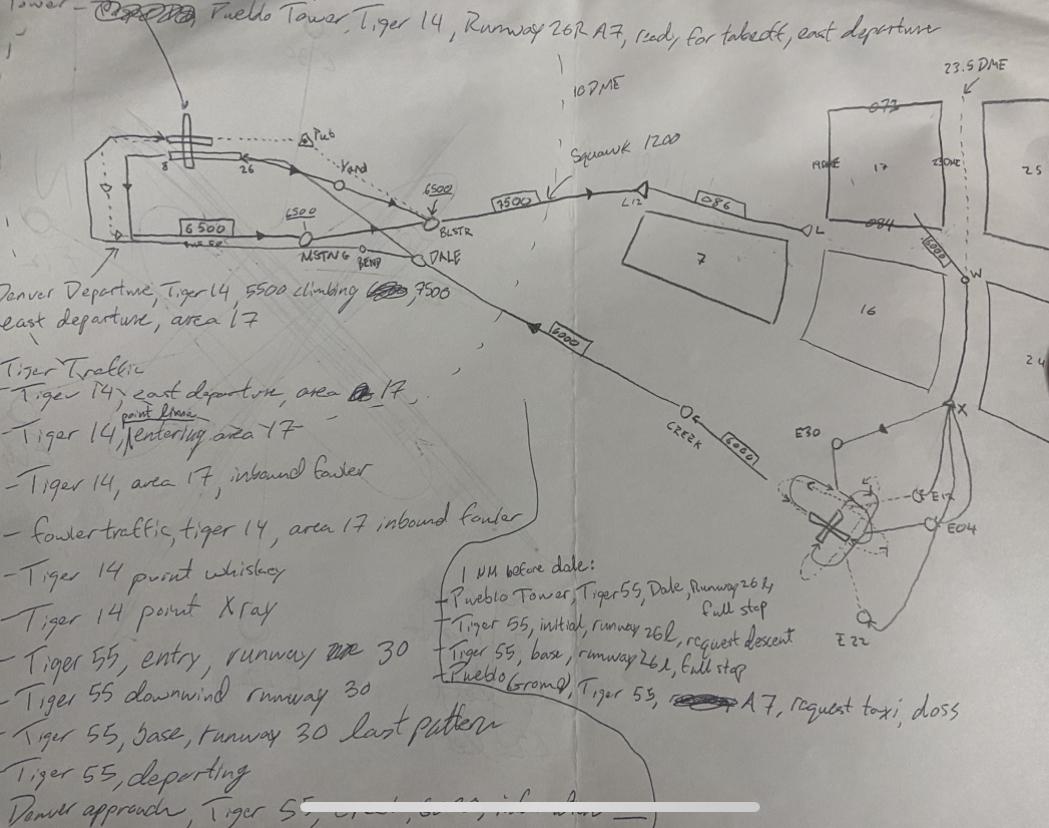 Tower - Pueblo Tower, Tiger 14, Runway 26R A7, ready for takeoff, east departure
23.5 DME
10 DME
Squawk 1200
073
Pub
Yard
8
26
6500
7500
L12
086
L
19DME
17
23DME
25
084
6000
W
6500
6500
BLSTR
MSTNG
BEND
DALE
7
16
24
Denver Departure, Tiger 14, 5500 climbing 7500
east departure, area 17
6000
CZEEK
6000
X
E30
E04
E22
Tiger Traffic
- Tiger 14, east departure, area 17,
point lima
- Tiger 14, entering area 17
- Tiger 14, area 17, inbound fowler
- fowler traffic, tiger 14, area 17 inbound fowler
- Tiger 14 point whiskey
- Tiger 14 point Xray
- Tiger 55, entry, runway 30
- Tiger 55 downwind runway 30
- Tiger 55, base, runway 30 last pattern
Tiger 55, departing
Denver approach, Tiger 55,
1 NM before dale:
- Pueblo Tower, Tiger 55, Dale, Runway 26L,
full stop
- Tiger 55, initial, runway 26l, request descent
- Tiger 55, base, runway 26l, full stop
- Pueblo Ground, Tiger 55, A7, request taxi, doss